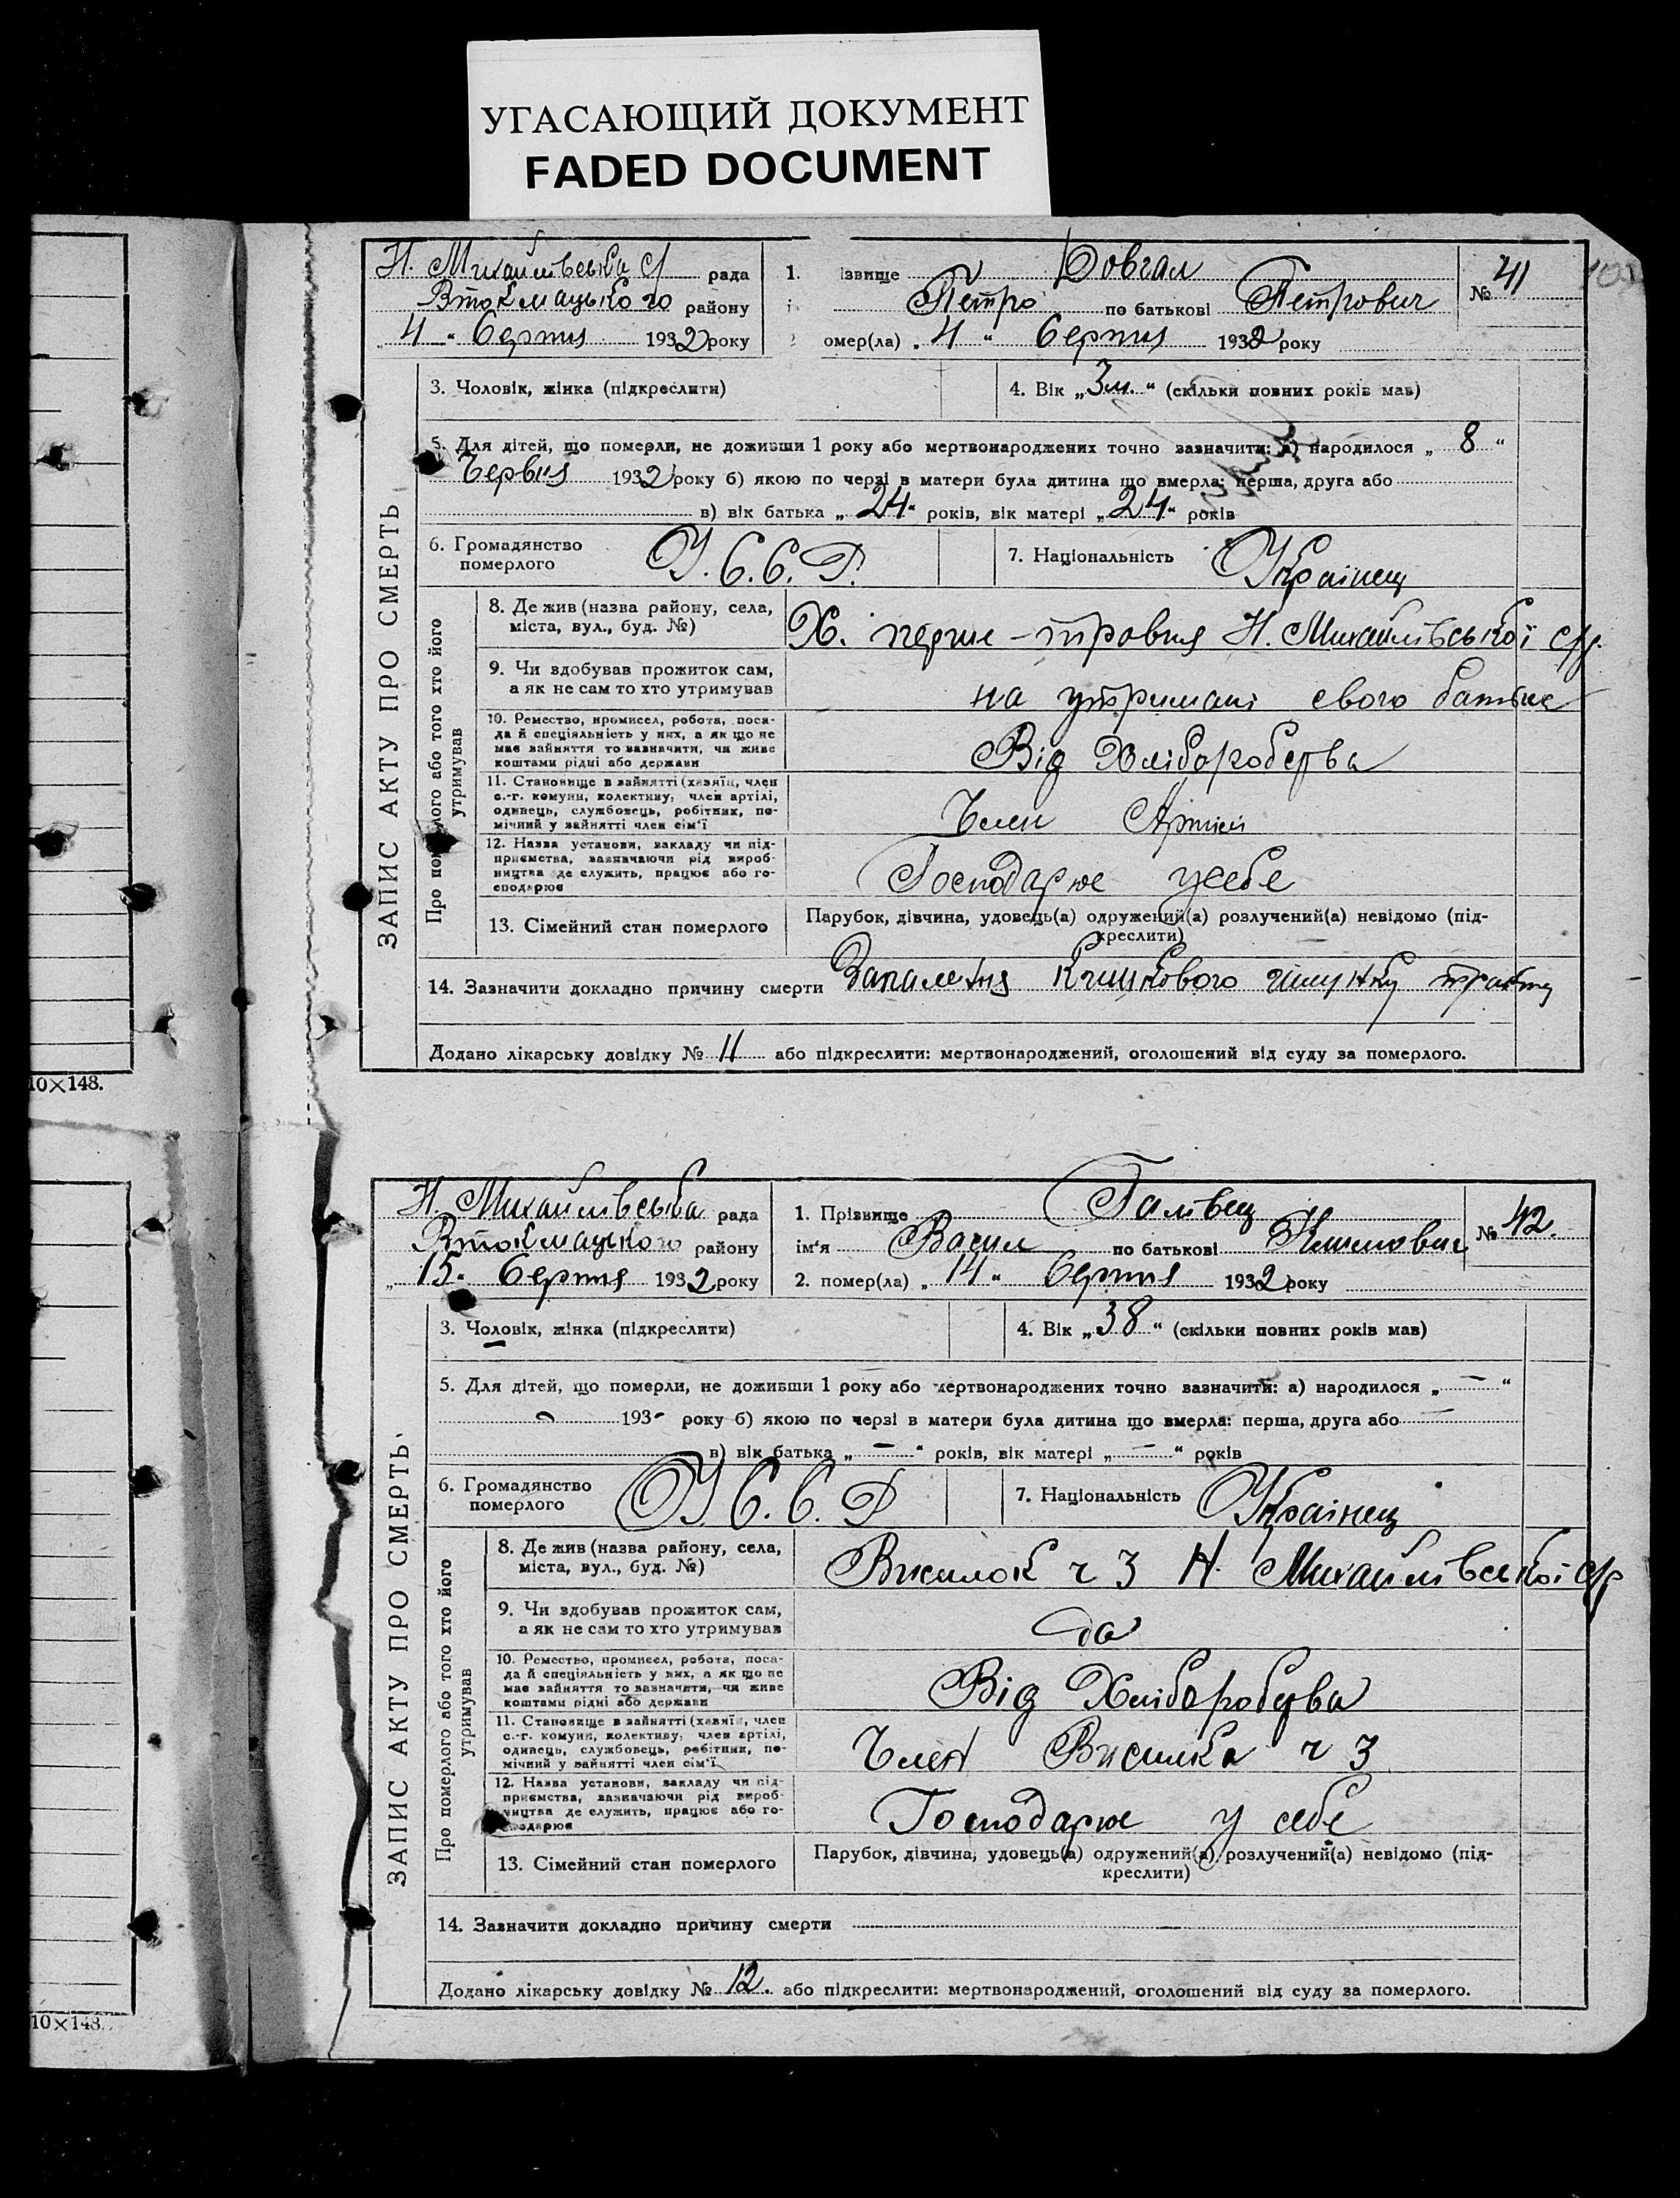 УГАСАЮЩИЙ ДОКУМЕНТ
FADED DOCUMENT
Н. Михайлівська с/ рада
Втокмацького району
„ 4 " Серпня 1932 року
1. ізвище Довгал
Петро по батькові Петрович
омер(ла) „ 4 " Серпня 1932 року
№ 41
3. Чоловік, жінка (підкреслити)
4. Вік „ 3 м. " (скільки повних років мав)
5. Для дітей, що померли, не доживши 1 року або мертвонароджених точно зазначити: а) народилося „ 8 "
Червня 1932 року б) якою по черзі в матери була дитина що вмерла: перша, друга або
в) вік батька „ 24 " років, вік матері „ 24 " років
6. Громадянство
померлого
У. С. С. Р.
7. Національність Українец
ЗАПИС АКТУ ПРО СМЕРТЬ
Про пом лого або того хто його
утримував
8. Де жив (назва району, села,
міста, вул., буд. №)
Х. перше-травня Н. Михайлівської с/р.
9. Чи здобував прожиток сам,
а як не сам то хто утримував
на утримані свого батька
10. Ремество, промисел, робота, поса-
да й спеціяльність у них, а як що не
має зайняття то зазначити, чи живе
коштами рідні або держави
Від Хліборобства
11. Становище в зайнятті (хазяїн, член
с.-г. комуни, колективу, член артілі,
одинець, службовець, робітник, по-
мічний у зайнятті член сім'ї
Член Артілі
12. Назва установи, закладу чи під-
приємства, зазначаючи рід вироб-
ництва де служить, працює або го-
сподарює
Господарює усебе
13. Сімейний стан померлого
Парубок, дівчина, удовець(а) одружений(а) розлучений(а) невідомо (під-
креслити)
14. Зазначити докладно причину смерти Запалення кишкового тракту
Додано лікарську довідку № 11 або підкреслити: мертвонароджений, оголошений від суду за померлого.
10×148.
Н. Михайлівська рада
Втокмацького району
„ 15 " Серпня 1932 року
1. Прізвище Галівец
ім'я Васил по батькові
2. помер(ла) „ 14 " Серпня 1932 року
№ 42.
3. Чоловік, жінка (підкреслити)
4. Вік „ 38 " (скільки повних років мав)
5. Для дітей, що померли, не доживши 1 року або мертвонароджених точно зазначити: а) народилося „ — "
193- року б) якою по черзі в матери була дитина що вмерла: перша, друга або —
в) вік батька „ — " років, вік матері „ — " років
6. Громадянство
померлого
У. С. С. Р
7. Національність Українец
ЗАПИС АКТУ ПРО СМЕРТЬ
Про померлого або того хто його
утримував
8. Де жив (назва району, села,
міста, вул., буд. №)
Висилок ч 3 Н. Михайлівської с/р
9. Чи здобував прожиток сам,
а як не сам то хто утримував
да
10. Ремество, промисел, робота, поса-
да й спеціяльність у них, а як що не
має зайняття то зазначити, чи живе
коштами рідні або держави
Від Хліборобства
11. Становище в зайнятті (хазяїн, член
с.-г. комуни, колективу, член артілі,
одинець, службовець, робітник, по-
мічний у зайнятті член сім'ї
Член Висилка ч 3
12. Назва установи, закладу чи під-
приємства, зазначаючи рід вироб-
ництва де служить, працює або го-
сподарює
Господарює у себе
13. Сімейний стан померлого
Парубок, дівчина, удовець(а) одружений(а) розлучений(а) невідомо (під-
креслити)
14. Зазначити докладно причину смерти
Додано лікарську довідку № 12. або підкреслити: мертвонароджений, оголошений від суду за померлого.
10×148.